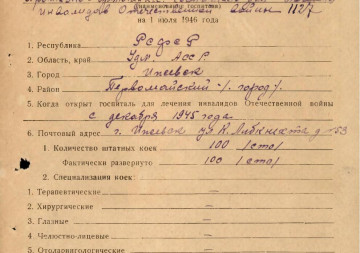 Инвалидов Отечественной войны 1127
(наименование госпиталя)
на 1 июля 1946 года
1. Республика РСФСР
2. Область, край Удм. АССР.
3. Город Ижевск
4. Район Первомайский /. город/.
5. Когда открыт госпиталь для лечения инвалидов Отечественной войны
с декабря 1945 года.
6. Почтовый адрес г. Ижевск ул К. Либкнехта д-53
1. Количество штатных коек 100 /сто/
Фактически развернуто 100 /сто/
2. Специализация коек
1. Терапевтические —
2. Хирургические —
3. Глазные —
4. Челюстно-лицевые —
5. Отоларингологические —